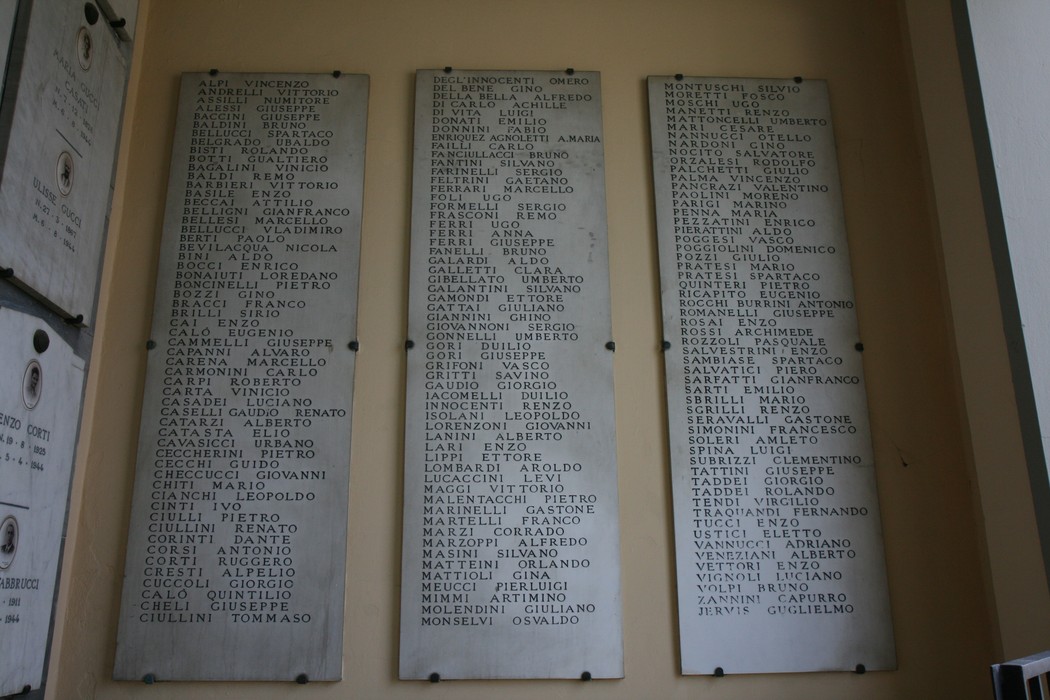 MARIA GUCCI
CASATI
ULISSE GUCCI
ENZO CORTI
N. 19 - 8 - 1925
. 5 - 4 - 1944
FABBRUCCI
- 1911
- 1944
ALPI VINCENZO
ANDRELLI VITTORIO
ASSILLI NUMITORE
ALESSI GIUSEPPE
BACCINI GIUSEPPE
BALDINI BRUNO
BELLUCCI SPARTACO
BELGRADO UBALDO
BISTI ROLANDO
BOTTI GUALTIERO
BAGALINI VINICIO
BALDI REMO
BARBIERI VITTORIO
BASILE ENZO
BECCAI ATTILIO
BELLIGNI GIANFRANCO
BELLESI MARCELLO
BELLUCCI VLADIMIRO
BERTI PAOLO
BEVILACQUA NICOLA
BINI ALDO
BOCCI ENRICO
BONAIUTI LOREDANO
BONCINELLI PIETRO
BOZZI GINO
BRACCI FRANCO
BRILLI SIRIO
CAI ENZO
CALÒ EUGENIO
CAMMELLI GIUSEPPE
CAPANNI ALVARO
CARENA MARCELLO
CARMONINI CARLO
CARPI ROBERTO
CARTA VINICIO
CASADEI LUCIANO
CASELLI GAUDIO RENATO
CATARZI ALBERTO
CATASTA ELIO
CAVASICCI URBANO
CECCHERINI PIETRO
CECCHI GUIDO
CHECCUCCI GIOVANNI
CHITI MARIO
CIANCHI LEOPOLDO
CINTI IVO
CIULLI PIETRO
CIULLINI RENATO
CORINTI DANTE
CORSI ANTONIO
CORTI RUGGERO
CRESTI ALPELIO
CUCCOLI GIORGIO
CALÒ QUINTILIO
CHELI GIUSEPPE
CIULLINI TOMMASO
DEGL'INNOCENTI OMERO
DEL BENE GINO
DELLA BELLA ALFREDO
DI CARLO ACHILLE
DI VITA LUIGI
DONATI EMILIO
DONNINI FABIO
ENRIQUEZ AGNOLETTI A.MARIA
FAILLI CARLO
FANCIULLACCI BRUNO
FANTINI SILVANO
FARINELLI SERGIO
FELTRINI GAETANO
FERRARI MARCELLO
FOLI UGO
FORMELLI SERGIO
FRASCONI REMO
FERRI UGO
FERRI ANNA
FERRI GIUSEPPE
FANELLI BRUNO
GALARDI ALDO
GALLETTI CLARA
GIBELLATO UMBERTO
GALANTINI SILVANO
GAMONDI ETTORE
GATTAI GIULIANO
GIANNINI GHINO
GIOVANNONI SERGIO
GONNELLI UMBERTO
GORI DUILIO
GORI GIUSEPPE
GRIFONI VASCO
GRITTI SAVINO
GAUDIO GIORGIO
IACOMELLI DUILIO
INNOCENTI RENZO
ISOLANI LEOPOLDO
LORENZONI GIOVANNI
LANINI ALBERTO
LARI ENZO
LIPPI ETTORE
LOMBARDI AROLDO
LUCACCINI LEVI
MAGGI VITTORIO
MALENTACCHI PIETRO
MARINELLI GASTONE
MARTELLI FRANCO
MARZI CORRADO
MARZOPPI ALFREDO
MASINI SILVANO
MATTEINI ORLANDO
MATTIOLI GINA
MEUCCI PIERLUIGI
MIMMI ARTIMINO
MOLENDINI GIULIANO
MONSELVI OSVALDO
MONTUSCHI SILVIO
MORETTI FOSCO
MOSCHI UGO
MANETTI RENZO
MATTONCELLI UMBERTO
MARI CESARE
NANNUCCI OTELLO
NARDONI GINO
NOCITO SALVATORE
ORZALESI RODOLFO
PALCHETTI GIULIO
PALMA VINCENZO
PANCRAZI VALENTINO
PAOLINI MORENO
PARIGI MARINO
PENNA MARIA
PEZZATINI ENRICO
PIERATTINI ALDO
POGGESI VASCO
POGGIOLINI DOMENICO
POZZI GIULIO
PRATESI MARIO
PRATESI SPARTACO
QUINTERI PIETRO
RICAPITO EUGENIO
ROCCHI BURRINI ANTONIO
ROMANELLI GIUSEPPE
ROSAI ENZO
ROSSI ARCHIMEDE
ROZZOLI PASQUALE
SALVESTRINI ENZO
SAMBIASE SPARTACO
SALVATICI PIERO
SARFATTI GIANFRANCO
SARTI EMILIO
SBRILLI MARIO
SGRILLI RENZO
SERAVALLI GASTONE
SIMONINI FRANCESCO
SOLERI AMLETO
SPINA LUIGI
SUBRIZZI CLEMENTINO
TATTINI GIUSEPPE
TADDEI GIORGIO
TADDEI ROLANDO
TENDI VIRGILIO
TRAQUANDI FERNANDO
TUCCI ENZO
USTICI ELETTO
VANNUCCI ADRIANO
VENEZIANI ALBERTO
VETTORI ENZO
VIGNOLI LUCIANO
VOLPI BRUNO
ZANNINI CAPURRO
JERVIS GUGLIELMO